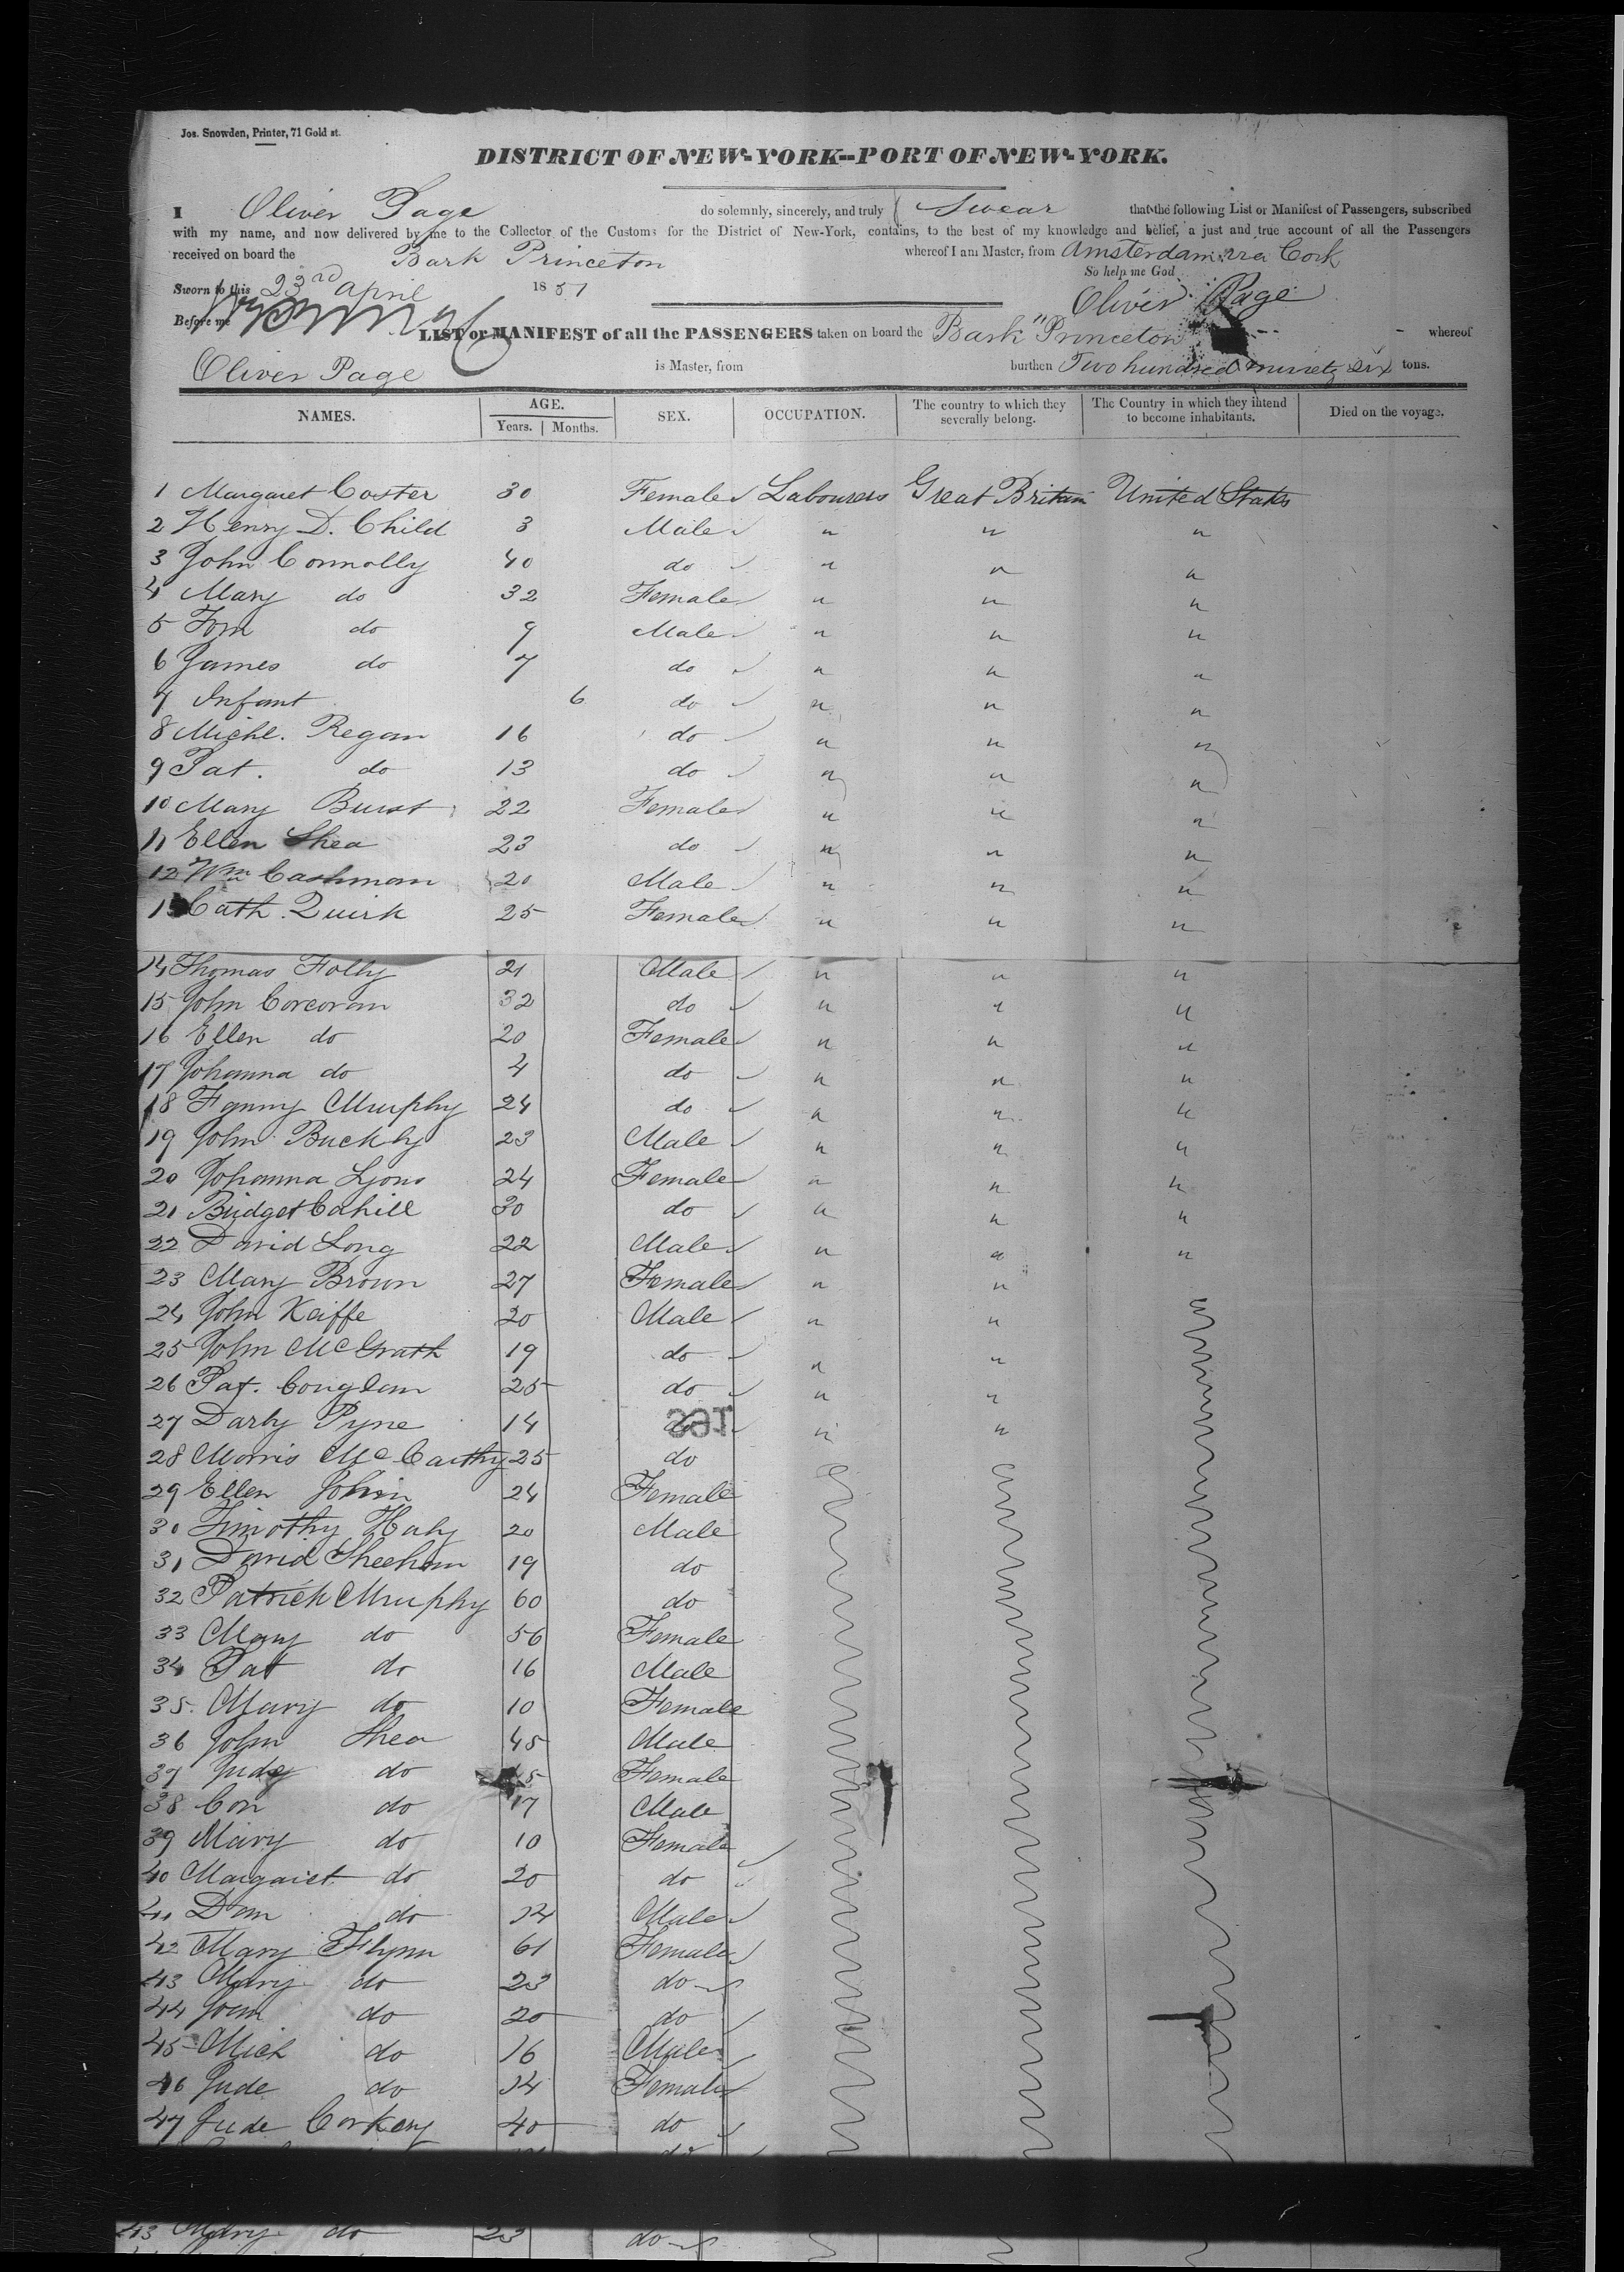 Jos. Snowden, Printer, 71 Gold st.
DISTRICT OF NEW-YORK--PORT OF NEW-YORK.
I Oliver Page do solemnly, sincerely, and truly Swear that the following List or Manifest of Passengers, subscribed
with my name, and now delivered by me to the Collector of the Customs for the District of New-York, contains, to the best of my knowledge and belief, a just and true account of all the Passengers
received on board the Bark Princeton whereof I am Master, from Amsterdam via Cork
So help me God
Sworn to this 23rd April 1851 Oliver Page
Before me
LIST or MANIFEST of all the PASSENGERS taken on board the Bark "Princeton whereof
Oliver Page is Master, from burthen Two hundred ninety six tons.
NAMES. AGE. Years. Months. SEX. OCCUPATION. The country to which they severally belong. The Country in which they intend to become inhabitants. Died on the voyage.
1 Margaret Coster 30 Female Labourers Great Britain United States
2 Henry D. Child 3 Male " " "
3 John Connolly 40 do " " "
4 Mary do 32 Female " " "
5 Tom do 9 Male " " "
6 James do 7 do " " "
7 Infant 6 do " " "
8 Michl. Regan 16 do " " "
9 Pat. do 13 do " " "
10 Mary 22 Female " " "
11 Ellen Shea 23 do " " "
12 Wm Cashman 20 Male " " "
13 Cath. Quirk 25 Female " " "
14 Thomas Folly 21 Male " " "
15 John Corcoran 32 do " " "
16 Ellen do 20 Female " " "
17 Johanna do 4 do " " "
18 Fanny Murphy 24 do " " "
19 John Buckly 23 Male " " "
20 Johanna Lyons 24 Female " " "
21 Bridget Cahill 30 do " " "
22 David Long 22 Male " " "
23 Mary Brown 27 Female " "
24 John Keiffe 20 Male " "
25 John McGrath 19 do " "
26 Pat. Conglan 25 do " "
27 Darby Pyne 14 " "
28 Morris McCarthy 25 do
29 Ellen 24 Female
30 Timothy Haly 20 Male
31 David Sheehan 19 do
32 Patrick Murphy 60 do
33 Mary do 56 Female
34 Pat do 16 Male
35 Mary do 10 Female
36 John Shea 45 Male
37 Judy do Female
38 Con do 17 Male
39 Mary do 10 Female
40 Margaret do 20 do
41 Dan do 14 Male
42 Mary Flynn 61 Female
43 Mary do 23 do
44 Joan do 20 do
45 Mich do 16 Male
46 Jude do 14 Female
47 Jude Corkery 40 do
43 Mary do 23 do